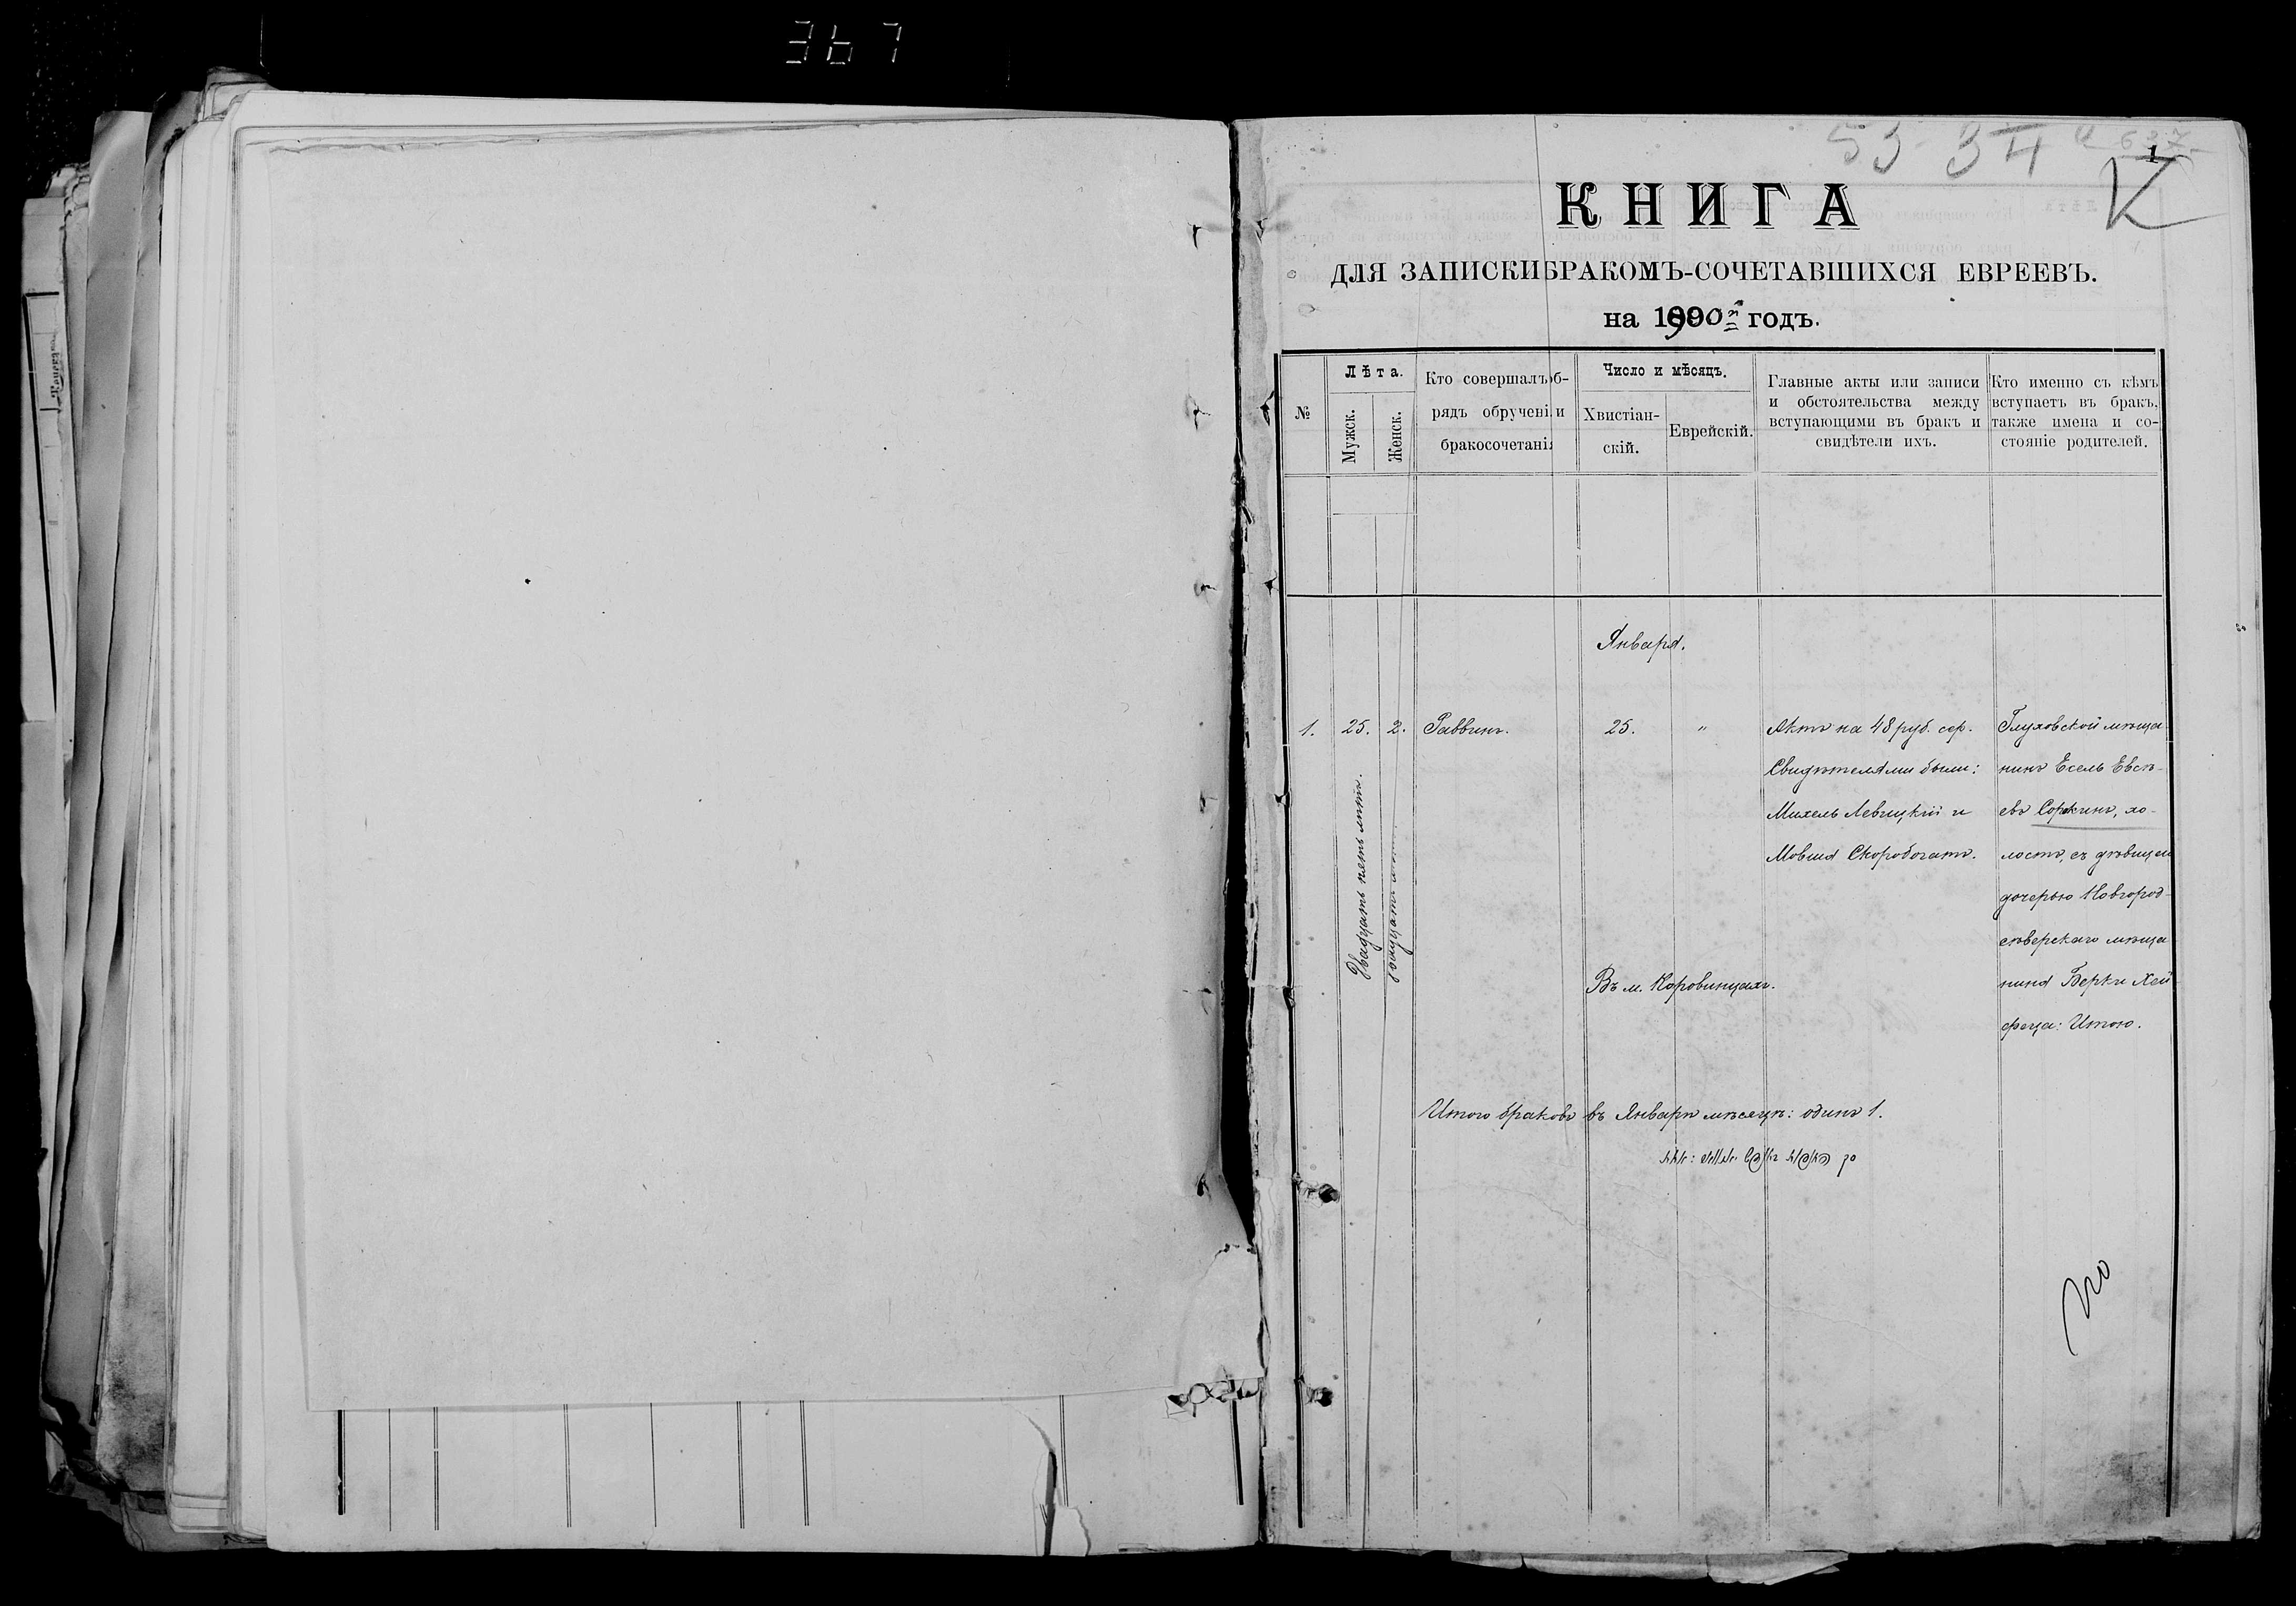 367
53 34
1
КНИГА
ДЛЯ ЗАПИСКИ БРАКОМЪ-СОЧЕТАВШИХСЯ ЕВРЕЕВЪ.
на 1900й годъ.
№
Лѣта.
Мужск.
Женск.
Кто совершалъ об-
рядъ обрученія и
бракосочетанія
Число и мѣсяцъ.
Хвистіан-
скій.
Еврейскій.
Главные акты или записи
и обстоятельства между
вступающими въ бракъ и
свидѣтели ихъ.
Кто именно съ кѣмъ
вступаетъ въ бракъ,
также имена и со-
стояніе родителей.
Января.
1. 25. 2. Раввинъ. 25. "
Двадцать пять лѣтъ.
двадцать
Актъ на 48 руб. сер.
Свидѣтелями были:
Михель Левицкій и
Мовша Скоробогатъ.
Глуховской мѣща-
нинъ Есель Евсѣ-
евъ Соркинъ, хо-
лостъ, съ дѣвицей
дочерью Новгород-
сѣверскаго мѣща
нина Берки Хей
феца: Итою.
Въ м. Коровинцахъ.
Итого браковъ въ Январѣ мѣсяцѣ: одинъ 1.